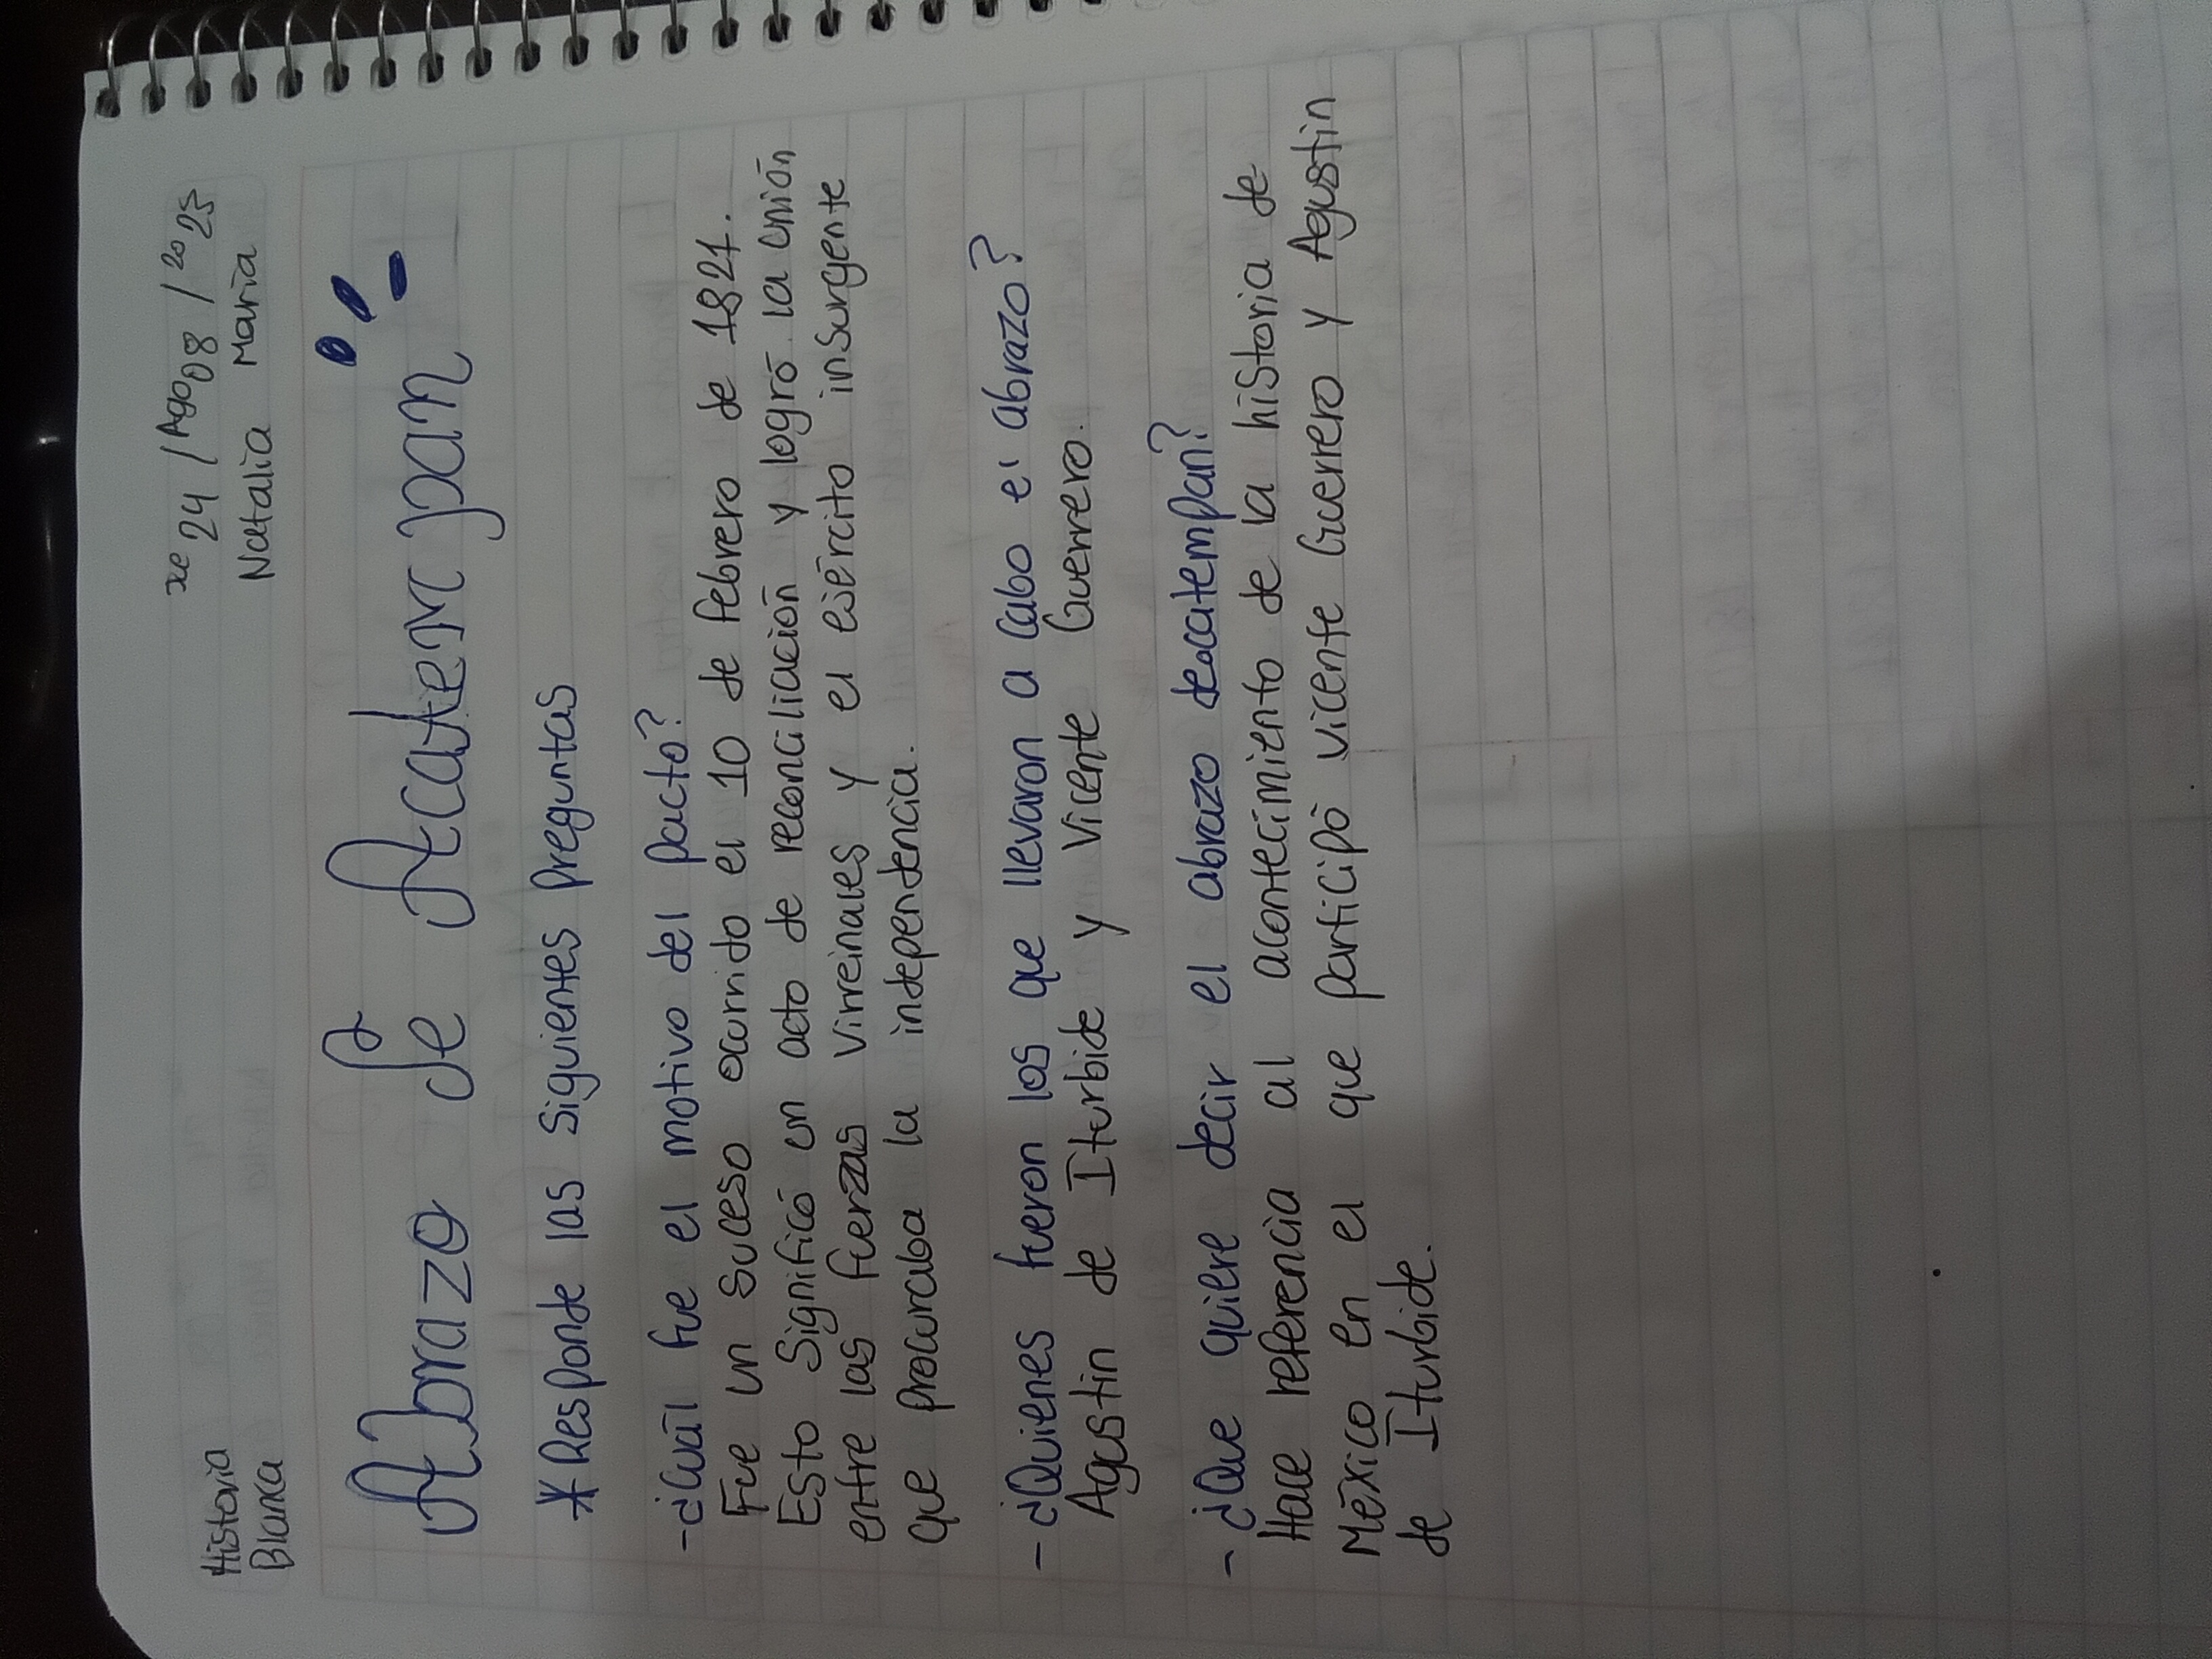 Historia
Blanca
xe 24 / Ago 08 / 20 25
Natalia María
Abrazo de Acatempan
* Responde las siguientes preguntas
- ¿Cuál fue el motivo del pacto?
Fue un suceso ocurrido el 10 de febrero de 1821.
Esto significó un acto de reconciliación y logró la unión
entre las fuerzas virreinales y el ejército insurgente
que procuraba la independencia.
- ¿Quienes fueron los que llevaron a cabo el abrazo?
Agustin de Iturbide y Vicente Guerrero.
- ¿Que quiere decir el abrazo deacatempan?
Hace referencia al acontecimiento de la historia de
México en el que participó vicente Guerrero y Agustin
de Iturbide.